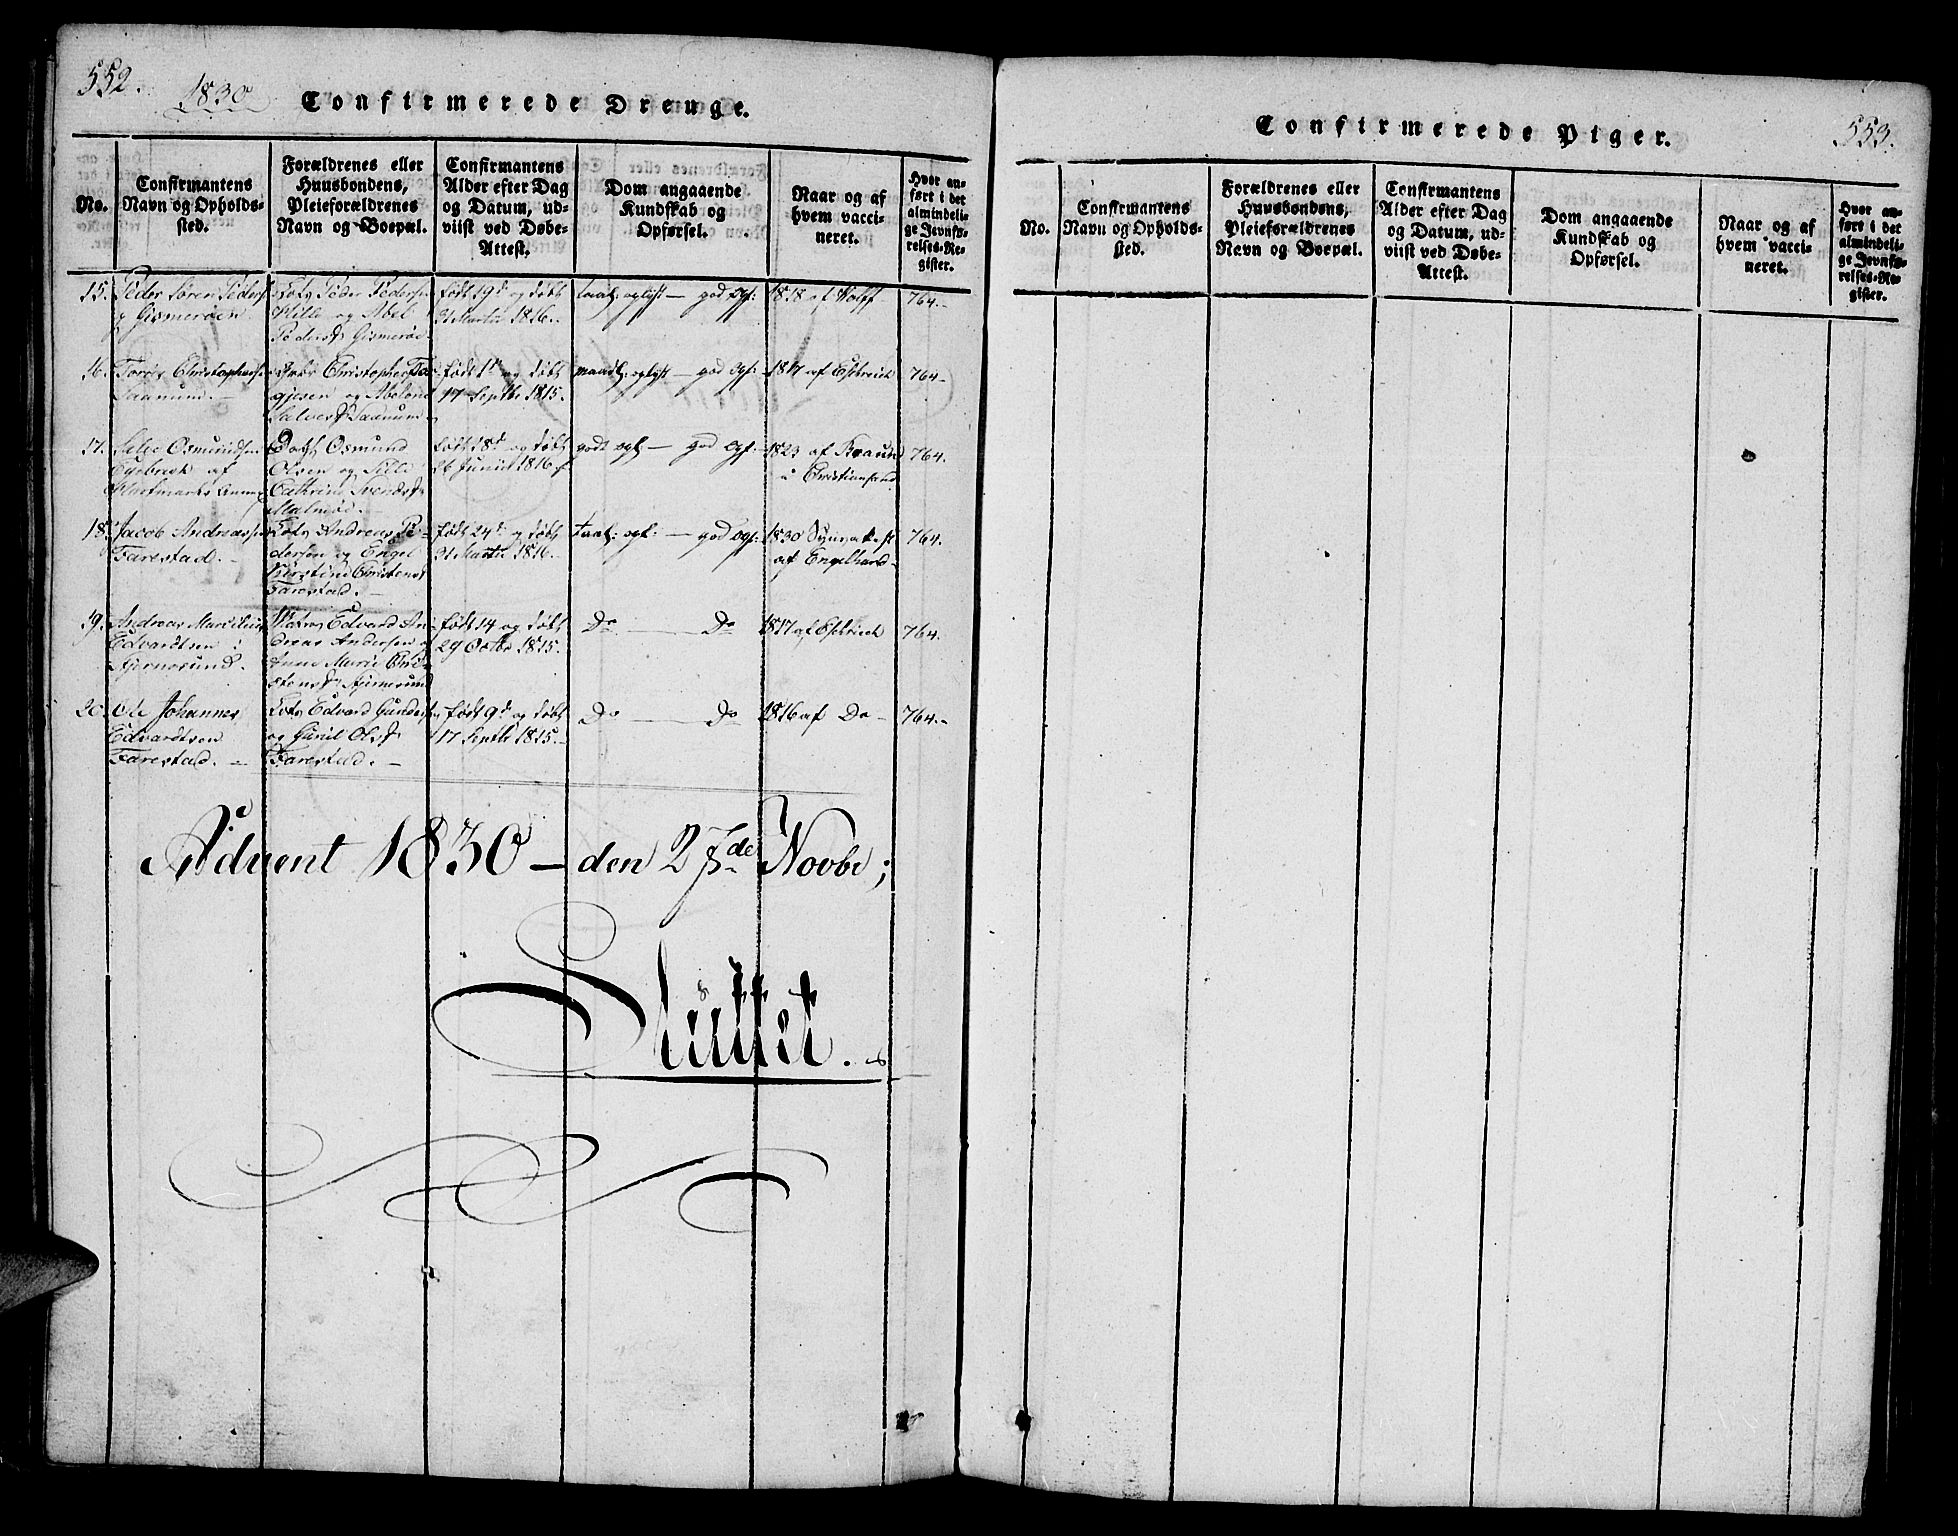 552.
1830
Confirmerede Drenge.
No.
Confirmantens
Navn og Opholds-
sted.
Forældrenes eller
Huusbondens,
Pleieforældrenes
Navn og Boepæl.
Confirmantens
Alder efter Dag
og Datum, ud-
viist ved Døbe-
Attest.
Dom angaaende
Kundskab og
Opførsel.
Naar og af
hvem vacci-
neret.
Hvor an-
ført i det
almindeli-
ge Jevnfø-
relses-Re-
gister.
15. Peder Søren Peders
Gismerøen
Peder Peders
Tille og Abel
Peders Gismerøe.
født 19d og døbt
31 Martii 1816.
taal: oplyst — god Opf:
1818 af Wolff
764.-
16. Torøs Christophers
Saanum. -
Christopher To-
gjesen og Abelone
Salves Saanum
født 1t og døbt
17 Septbr 1815.
maadl: oplyst — god Opf:
1817 af Eskrich
764-
17. Osmundsen
af
Osmund
Olsen og Sille
Cathrine Svends
Malmøe. -
født 18d og døbt
26 Junii 1816
godt opl — god Opf:
1823 af
i Christiansand
764.
18. Jacob Andreassen
Farestad. -
Andreas Pe-
dersen og Engel
Kirstine Christens
Farestad. -
født 24d og døbt
31 Martii 1816.
taal: opl: — god Opf:
1830
af Engelhard-
764.
19. Andreas
Edvardtsen
Stjernesund.
Edvard An-
dreas Andersen og
Anne Marie Chri-
stens Stjernesund
født 14 og døbt
29 Octbr 1815.
Do — Do
1817 af Eskrich
764.
20. Ole Johannes
Edvardtsen
Farestad. -
Edvard Gunders
og Guril Ols
Farestad. -
født 9d og døbt
17 Septbr 1815.-
Do — Do
1816 af Do -
764.-
Advent 1830 – den 27de Novbr;
Sluttet.
Confirmerede Piger.
553.
No.
Confirmantens
Navn og Opholds-
sted.
Forældrenes eller
Huusbondens,
Pleieforældrenes
Navn og Boepæl.
Confirmantens
Alder efter Dag
og Datum, ud-
viist ved Døbe-
Attest.
Dom angaaende
Kundskab og
Opførsel.
Naar og af
hvem vacci-
neret.
Hvor an-
ført i det
almindeli-
ge Jevnfø-
relses-Re-
gister.